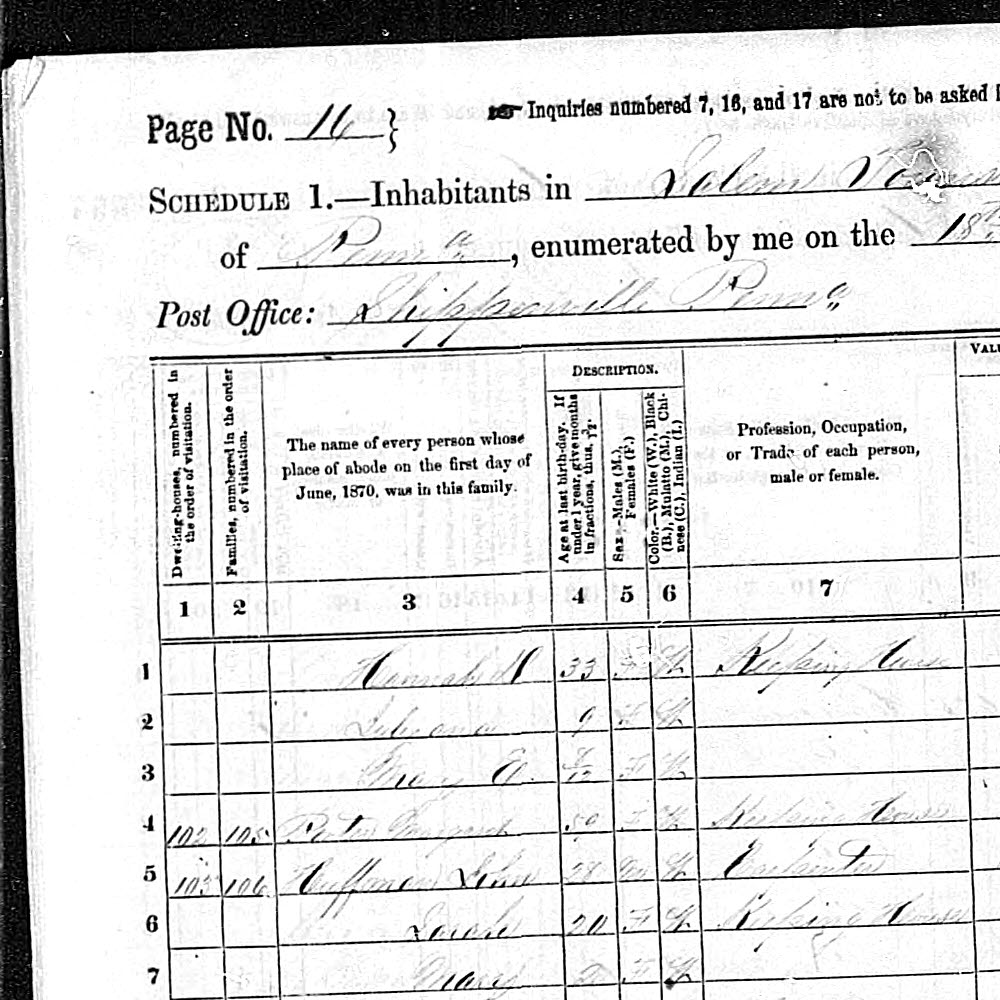 Page No. 16 } Inquiries numbered 7, 16, and 17 are not to be asked
SCHEDULE 1.—Inhabitants in Salem
of Penn a, enumerated by me on the 18
Post Office: Shippenville Penn a
DESCRIPTION.
Dwelling-houses, numbered in the order of visitation.
Families, numbered in the order of visitation.
The name of every person whose
place of abode on the first day of
June, 1870, was in this family.
Age at last birth-day. If under 1 year, give months in fractions, thus, 3/12.
Sex.—Males (M.), Females (F.)
Color.—White (W.), Black (B.), Mulatto (M.), Chinese (C.), Indian (I.)
Profession, Occupation,
or Trade of each person,
male or female.
1 2 3 4 5 6 7
1 Hannah 33 F W Keeping House
2 9 F W
3 Mary E. F W
4 102 105 Margaret 50 F W Keeping House
5 103 106 Huffman John 28 M W Carpenter
6 Sarah 20 F W Keeping House
7 Mary 2 F W